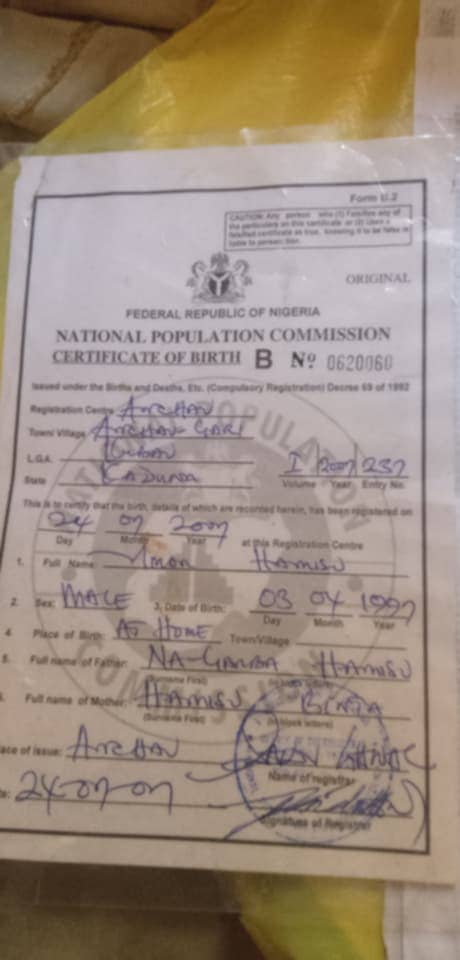 Form B.2
CAUTION: Any person who (1) Falsifies any of
the particulars on this certificate or (2) Uses a
falsified certificate as true, knowing it to be false is
liable to prosecution
ORIGINAL
FEDERAL REPUBLIC OF NIGERIA
NATIONAL POPULATION COMMISSION
CERTIFICATE OF BIRTH B Nº 0620060
Issued under the Births and Deaths, Etc. (Compulsory Registration) Decree 69 of 1992
Registration Centre ANCHAU
Town/ Village ANCHAU GARI
L.G.A.
State KADUNA
I 2007 237
Volume Year Entry No.
This is to certify that the birth, details of which are recorded herein, has been registered on
24 07 2007
Day Month Year at this Registration Centre
1. Full Name HAMISU
2. Sex: MALE 3. Date of Birth: 03 04 1997
Day Month Year
4. Place of Birth: AT HOME Town/Village
5. Full name of Father: NA-GARBA HAMISU
(Surname First) (In block letters)
Full name of Mother: HAMISU BINTA
(Surname First) (In block letters)
Place of issue: ANCHAU
Name of registrar
24-07-07
Signature of Registrar